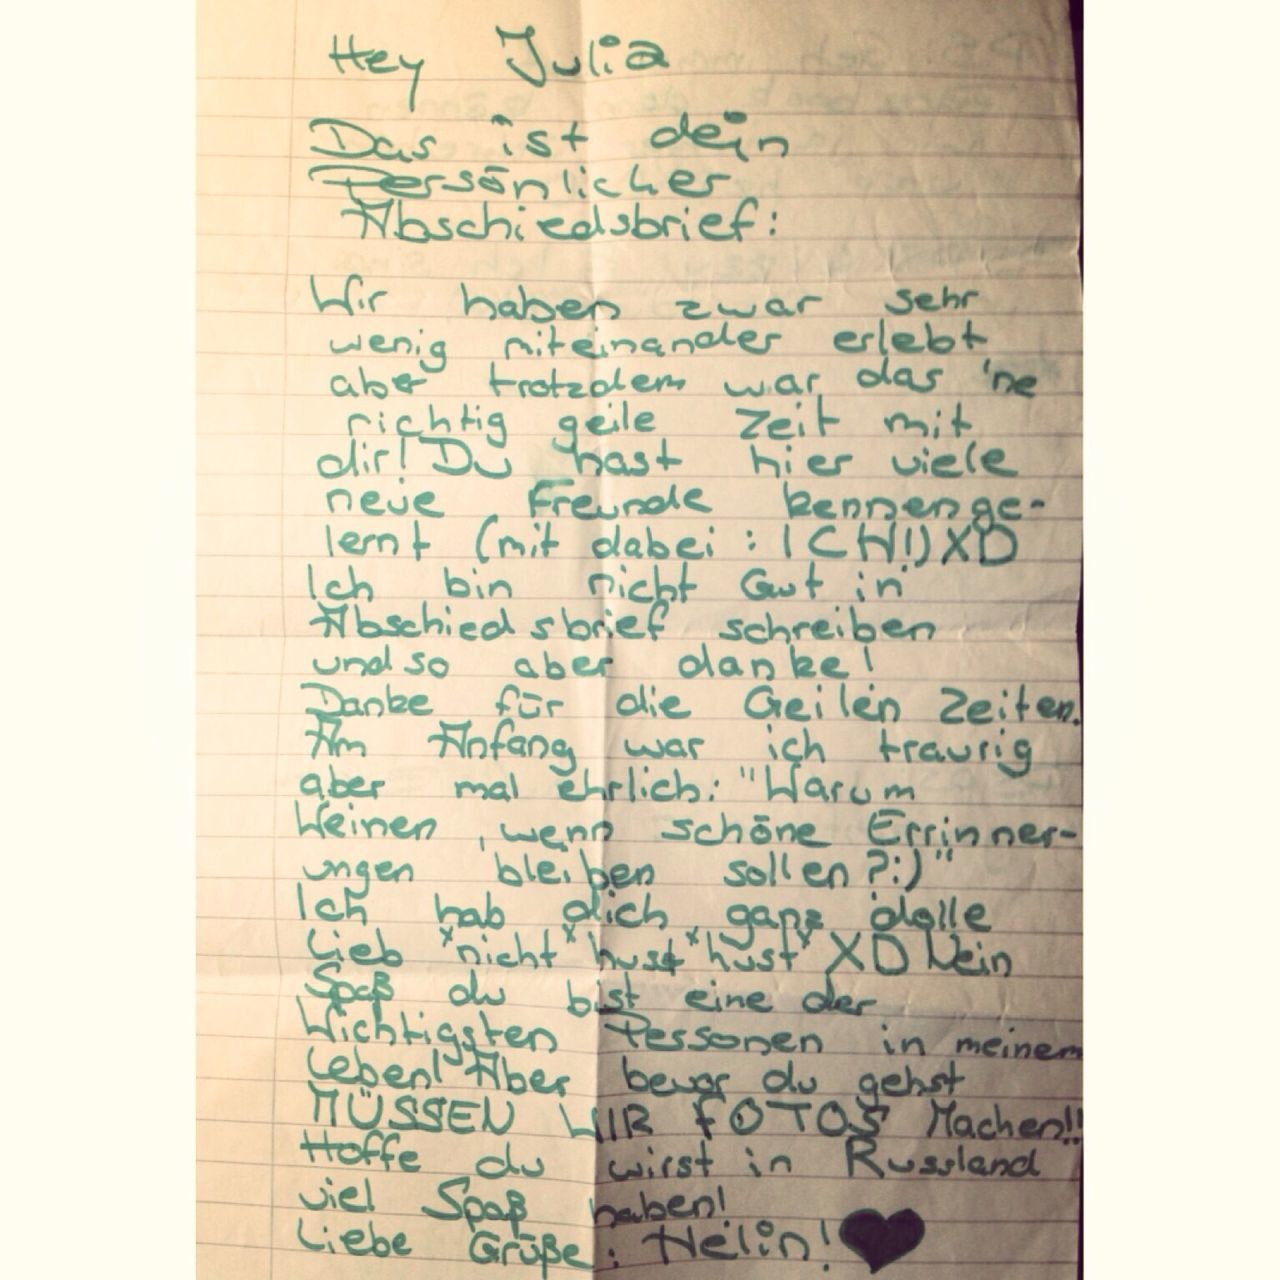 Hey Julia
Das ist dein
Persönlicher
Abschiedsbrief:
Wir haben zwar sehr
wenig miteinander erlebt
aber trotzdem war das 'ne
richtig geile Zeit mit
dir! Du hast hier viele
neue Freunde kennenge-
lernt (mit dabei : ICH!) XD
Ich bin nicht Gut in
Abschiedsbrief schreiben
und so aber danke!
Danke für die Geilen Zeiten.
Am Anfang war ich traurig
aber mal ehrlich: "Warum
Weinen, wenn schöne Errinner-
ungen bleiben sollen?:)"
Ich hab dich ganz dolle
Lieb *nicht* hust*hust* XD Nein
Spaß du bist eine der
Wichtigsten Personen in meinem
Leben! Aber bevor du gehst
MÜSSEN WIR FOTOS Machen!!
Hoffe du wirst in Russland
viel Spaß haben!
Liebe Grüße: Helin! ♥